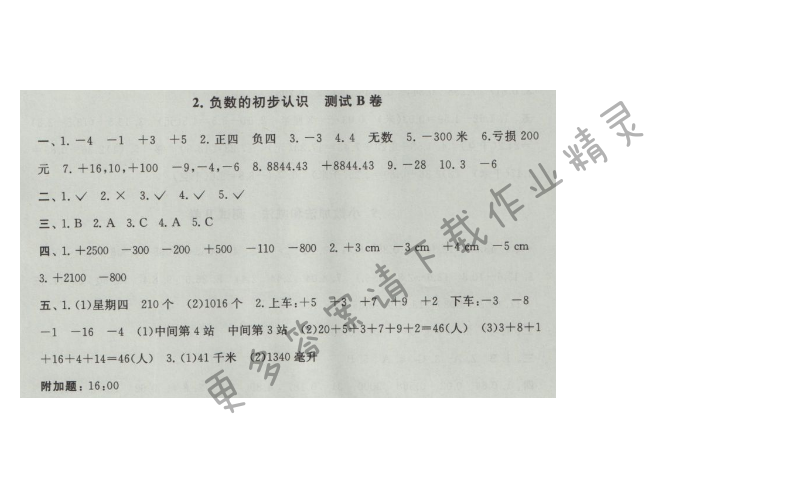 2. 负数的初步认识 测试 B 卷
一、1. －4 －1 ＋3 ＋5 2. 正四 负四 3. －3 4. 4 无数 5. －300 米 6. 亏损 200
元 7. ＋16,10,＋100 －9,－4,－6 8. 8844.43 ＋8844.43 9. －28 10. 3 －6
二、1. ✓ 2. × 3. ✓ 4. ✓ 5. ✓
三、1. B 2. A 3. C 4. A 5. C
四、1. ＋2500 －300 －200 ＋500 －110 －800 2. ＋3 cm －3 cm ＋4 cm －5 cm
3. ＋2100 －800
五、1. (1)星期四 210 个 (2)1016 个 2. 上车:＋5 ＋3 ＋7 ＋9 ＋2 下车:－3 －8
－1 －16 －4 (1)中间第 4 站 中间第 3 站 (2)20＋5＋3＋7＋9＋2＝46(人) (3)3＋8＋1
＋16＋4＋14＝46(人) 3. (1)41 千米 (2)1340 毫升
附加题：16:00
更多答案请下载作业精灵